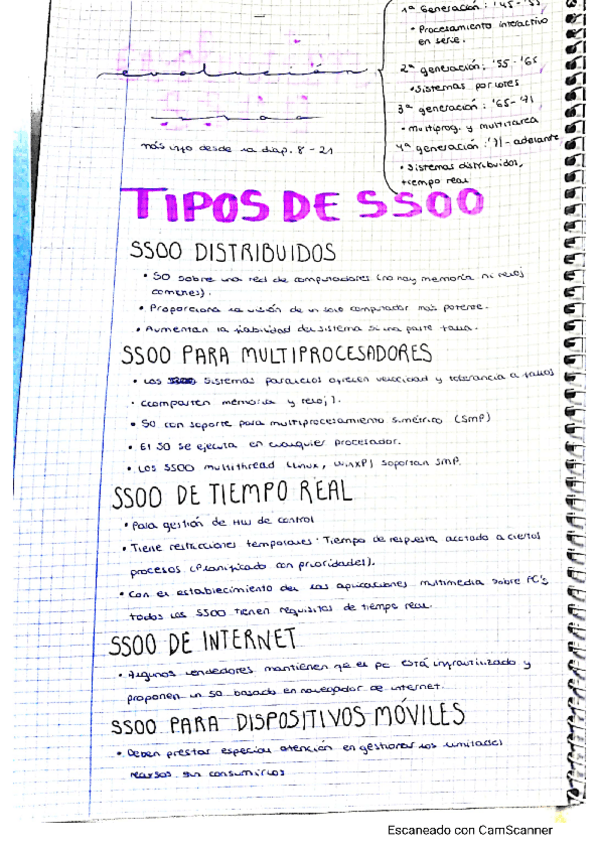 1ª Generación: '45-'55
• Procesamiento interactivo
en serie.
evolución
2ª generación: '55-'65
• Sistemas por lotes
3ª generación: '65-'71
• Multiprog. y multitarea
4ª generación: '71-adelante
• Sistemas distribuidos,
tiempo real
más info desde la diap. 8-21
TIPOS DE SSOO
SSOO DISTRIBUIDOS
• SO sobre una red de computadores (no hay memoria ni reloj
comunes).
• Proporciona la visión de un solo computador más potente.
• Aumentan la fiabilidad del sistema si una parte falla.
SSOO PARA MULTIPROCESADORES
• Los sistemas paralelos ofrecen velocidad y tolerancia a fallos
(comparten memoria y reloj).
• SO con soporte para multiprocesamiento simétrico (SMP)
• El SO se ejecuta en cualquier procesador.
• Los SSOO multithread (Linux, WinXP) soportan SMP.
SSOO DE TIEMPO REAL
• Para gestión de HW de control
• Tiene restricciones temporales: Tiempo de respuesta acotado a ciertos
procesos (Planificado con prioridades).
• Con el establecimiento de las aplicaciones multimedia sobre PC's
todos los SSOO tienen requisitos de tiempo real.
SSOO DE INTERNET
• Algunos vendedores mantienen que el pc está infrautilizado y
proponen un SO basado en navegador de internet.
SSOO PARA DISPOSITIVOS MÓVILES
• Deben prestar especial atención en gestionar los limitados
recursos sin consumirlos
Escaneado con CamScanner